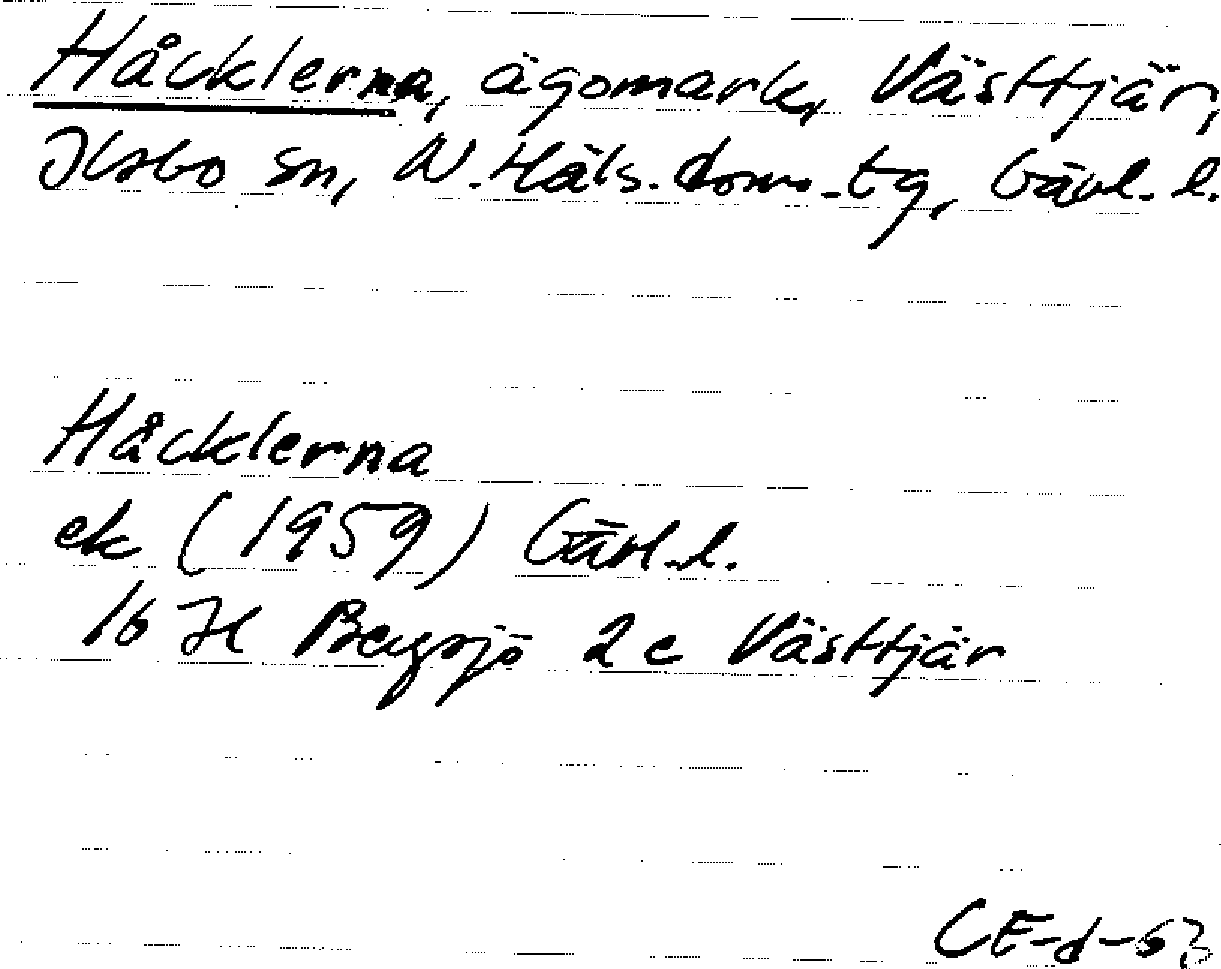 Håcklerna, ägomark, Västtjär,
Ilsbo sn, N. Häls. doms.tg, Gävl. l.
Håcklerna
ek (1959) Gävl. l.
16 H Bergsjö 2c Västtjär
CE-d-63